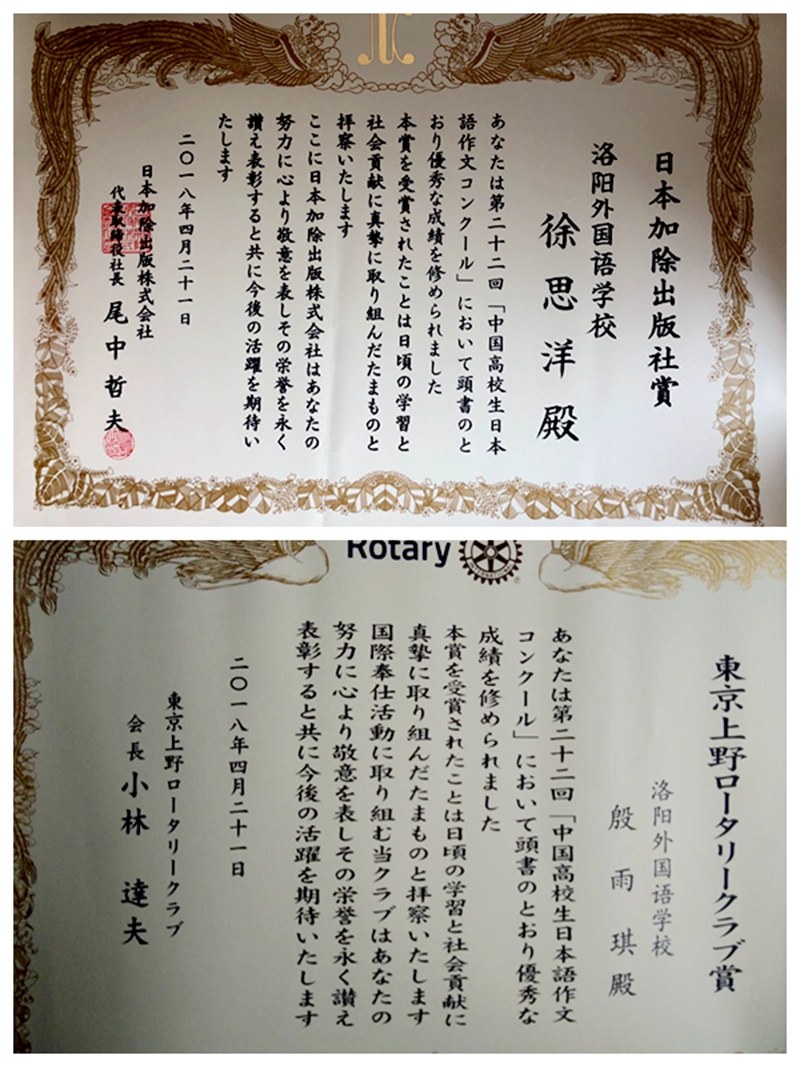 日本加除出版社賞
洛阳外国语学校
徐思洋殿
あなたは第二十二回「中国高校生日本
語作文コンクール」において頭書のと
おり優秀な成績を修められました
本賞を受賞されたことは日頃の学習と
社会貢献に真摯に取り組んだたまものと
拝察いたします
ここに日本加除出版株式会社はあなたの
努力に心より敬意を表しその栄誉を永く
讃え表彰すると共に今後の活躍を期待い
たします
二〇一八年四月二十一日
日本加除出版株式会社
代表取締役社長 尾中哲夫
Rotary
東京上野ロータリークラブ賞
洛阳外国语学校
殷雨琪殿
あなたは第二十二回「中国高校生日本語作文
コンクール」において頭書のとおり優秀な
成績を修められました
本賞を受賞されたことは日頃の学習と社会貢献に
真摯に取り組んだたまものと拝察いたします
国際奉仕活動に取り組む当クラブはあなたの
努力に心より敬意を表しその栄誉を永く讃え
表彰すると共に今後の活躍を期待いたします
二〇一八年四月二十一日
東京上野ロータリークラブ
会長 小林 達夫